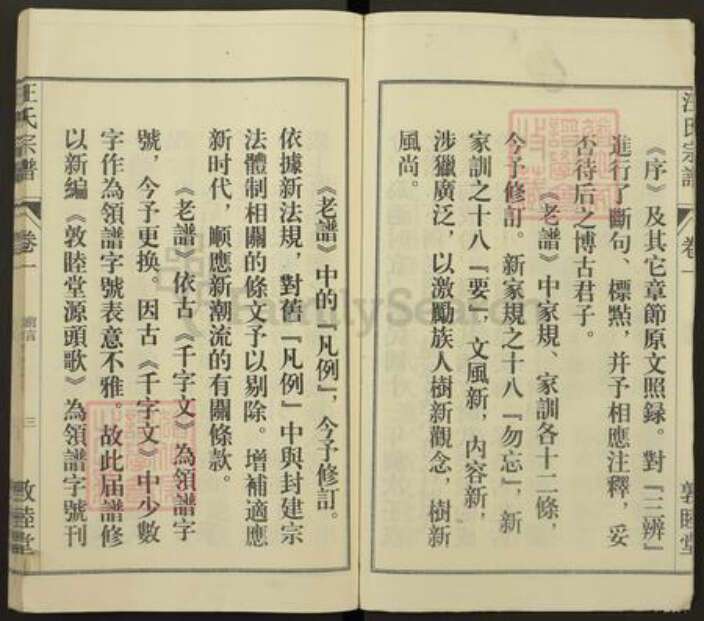 汪氏宗譜
卷一
敦睦堂
《序》及其它章節原文照録。對『三辨』
進行了斷句、標點，并予相應注釋，妥
否待后之博古君子。
《老譜》中家規、家訓各十二條，
今予修訂。新家規之十八『勿忘』，新
家訓之十八『要』，文風新，内容新，
涉獵廣泛，以激勵族人樹新觀念，樹新
風尚。
《老譜》中的『凡例』，今予修訂。
依據新法規，對舊『凡例』中與封建宗
法體制相關的條文予以剔除。增補適應
新时代，順應新潮流的有關條款。
《老譜》依古《千字文》為領譜字
號，今予更换。因古《千字文》中少數
字作為領譜字號表意不雅。故此届譜修
以新編《敦睦堂源頭歌》為領譜字號刊
汪氏宗譜
卷一
三
敦睦堂
FamilySearch